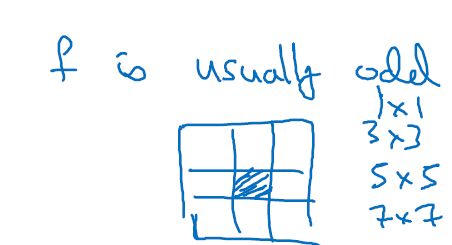 f is usually odd
1×1
3×3
5×5
7×7